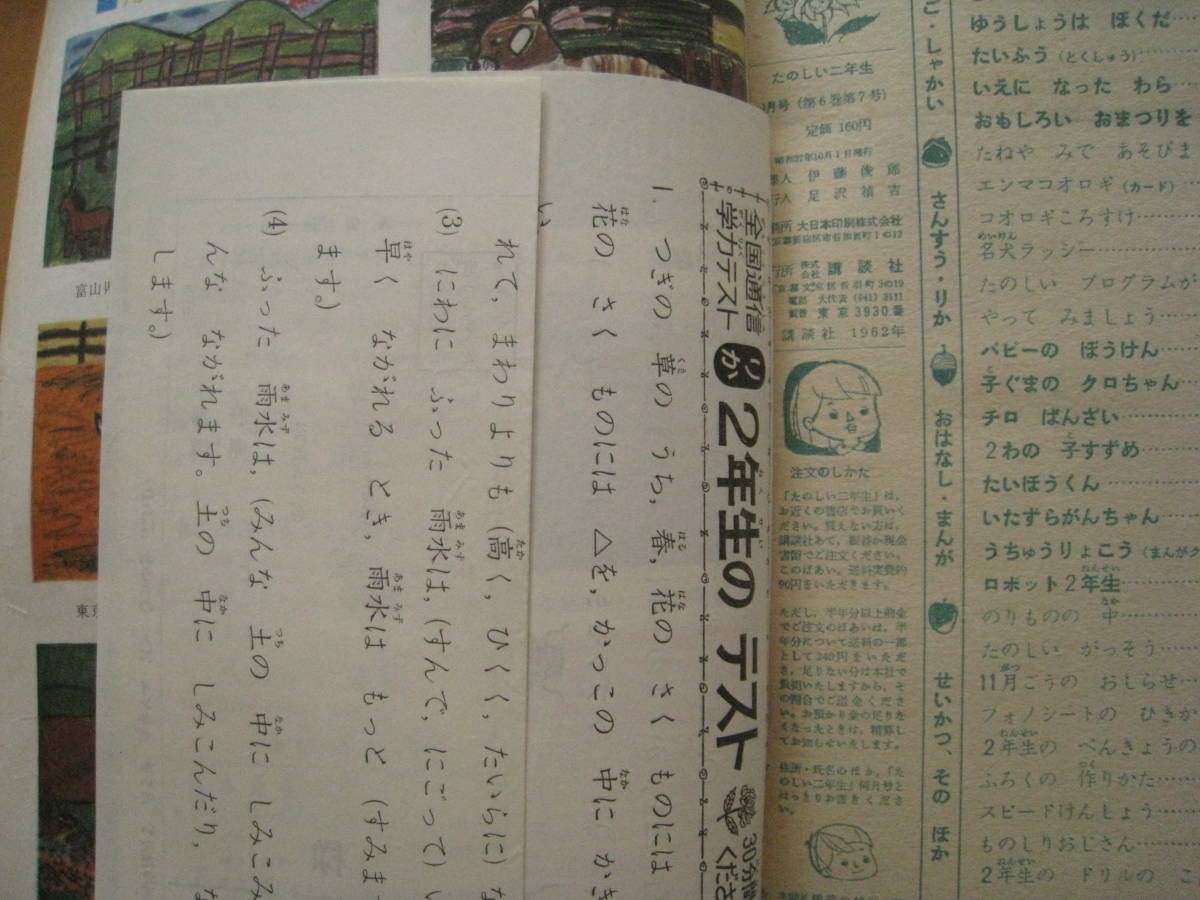 ゆうしょうは ぼくだ
たいふう（とくしゅう）
いえに なった わら
おもしろい おまつりを
たねや みで あそびま
エンマコオロギ（カード）
コオロギころすけ
名犬ラッシー
たのしい プログラムが
やって みましょう
パピーの ぼうけん
子ぐまの クロちゃん
チロ ばんざい
2わの 子すずめ
たいほうくん
いたずらがんちゃん
うちゅうりょこう（まんがク
ロボット2年生
のりものの 中
たのしい がっそう
11月ごうの おしらせ
フォノシートの ひきか
2年生の べんきょうの
ふろくの 作りかた
スピードけんしょう
ものしりおじさん
2年生の ドリルの こ
ご・しゃかい
さんすう・りか
おはなし・まんが
せいかつ、その ほか
たのしい二年生
月号（第6巻第7号）
定価 160円
昭和37年10月1日発行
人 伊藤俊郎
人 足沢禎吉
所 大日本印刷株式会社
行所 株式会社 講談社
電話 大代表(941)3111
振替 東京3930番
講談社 1962年
注文のしかた
「たのしい二年生」は、
お近くの書店でお買いく
ださい。買えない方は、
講談社あて、振替か現金
書留でご注文ください。
このばあい、送料実費約
90円をいただきます。
ただし、半年分以上前金
でご注文のばあいは、半
年分について送料の一部
として240円をいただき
、足りない分は本社で
負担いたしますから、そ
の割合でご送金くださ
い。お預かり金の足りな
くなったときは、精算し
てお知らせいたします。
住所・氏名のほか、「た
のしい二年生」何月号と
はっきりお書きくださ
い。
全国通信
学力テスト
りか 2年生の テスト
30分間
くださ
1. つぎの 草の うち，春，花の さく ものには
花の さく ものには △を，かっこの 中に かき
い
れて，まわりよりも（高く，ひくく，たいらに）な
(3) にわに ふった 雨水は，（すんで，にごって）い
早く ながれる とき，雨水は もっと （すみま
ます。）
(4) ふった 雨水は，（みんな 土の 中に しみこみ
んな ながれます。土の 中に しみこんだり，な
します。）
富山
東京